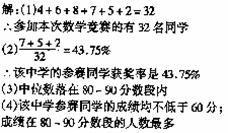 解:(1)4+6+8+7+5+2=32
∴参加本次数学竞赛的有32名同学
(2)7+5+2/32=43.75%
∴该中学的参赛同学获奖率是43.75%
(3)中位数落在80~90分数段内
(4)该中学参赛同学的成绩均不低于60分;
成绩在80~90分数段的人数最多